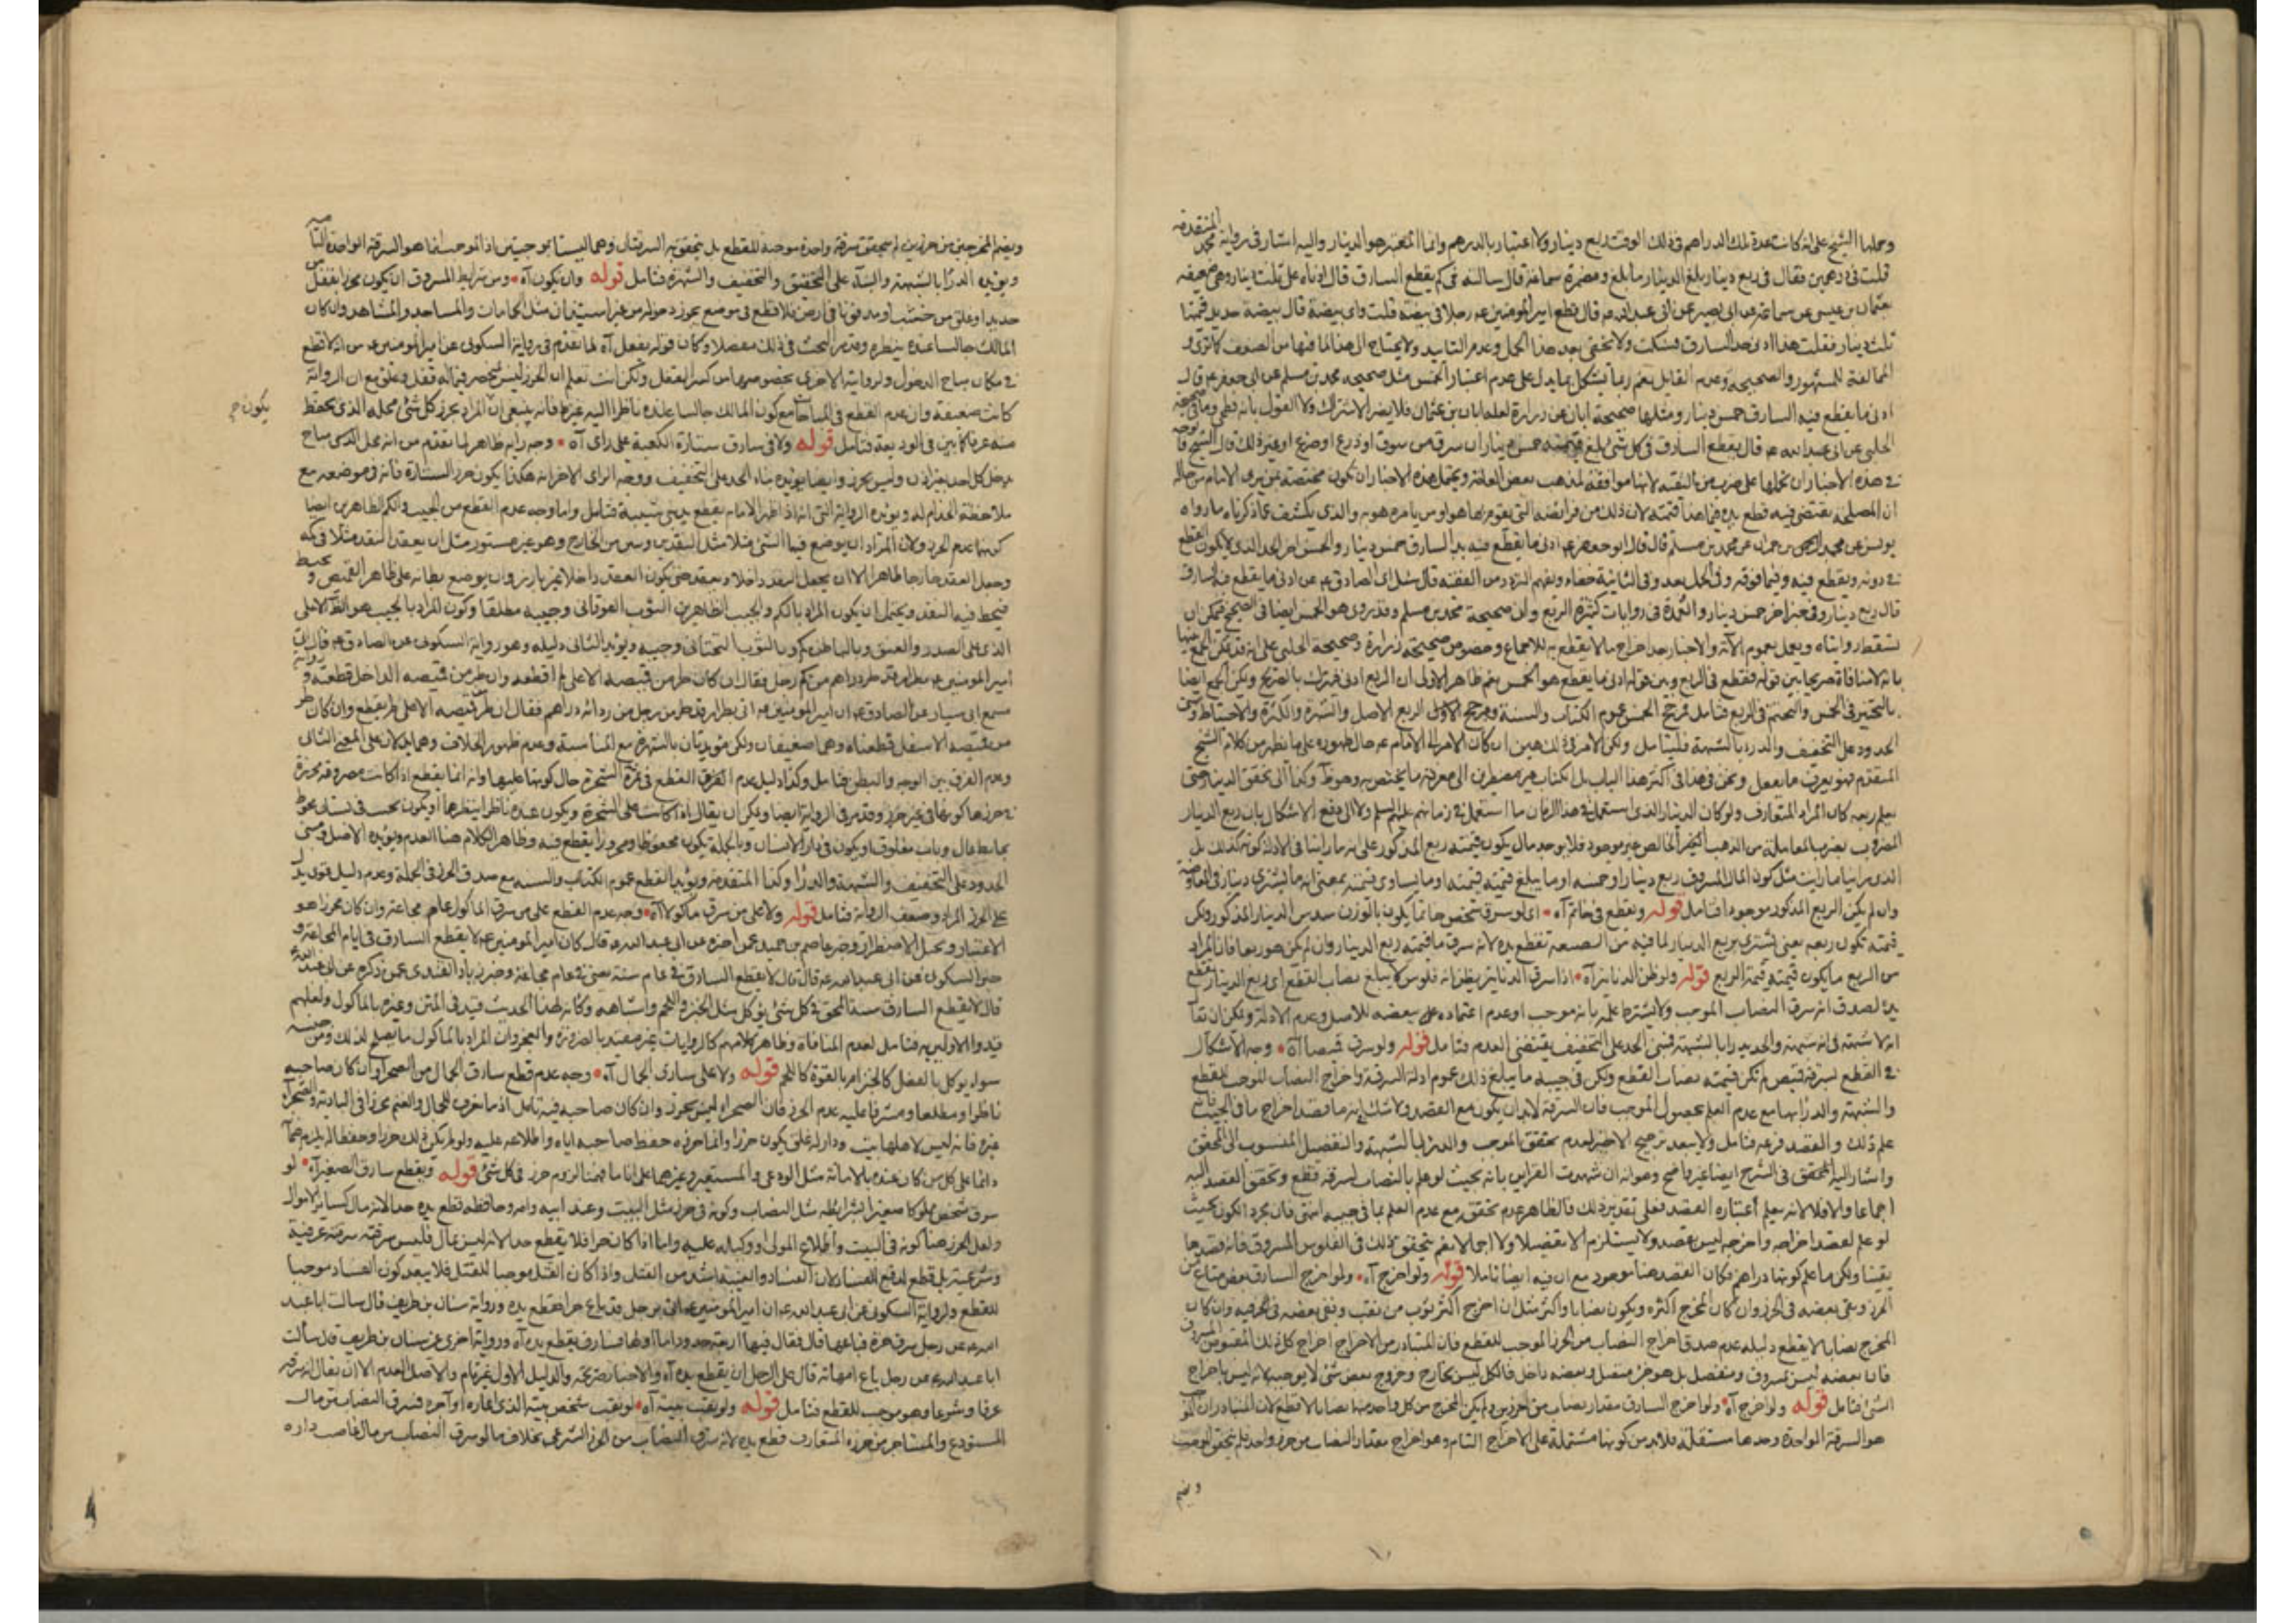 وحملها الشيخ على انه كانت عدة تلك الدراهم فى ذلك الوقت ربع دينار ولا اعتبار بالدرهم وانما المعتبر هو الدينار واليه اشار فى رواية محمد المتقدمة
قلت فى درهمين فقال فى ربع دينار بلغ الدينار ما بلغ ومضمرة سماعة قال سالته فى كم يقطع السارق قال ادناه على ثلث دينار وهى ضعيفه
عثمان بن عيسى عن سماعة عن ابى بصير عن ابى عبد الله عه قال قطع امير المؤمنين عه رجلا فى بيضة قلت واى بيضة قال بيضة حديد قيمتها
ثلث دينار فقلت هذا ادنى حد السارق فسكت ولا يخفى بعد هذا الحمل وعدم التاييد ولا يحتاج الى هذا لما فيها من الضعف كما ترى و
المخالفة للمشهور والصحيحة وعدم القايل نعم ربما يشكل بما يدل على عدم اعتبار الخمس مثل صحيحه محمد بن مسلم عن ابى جعفر عه قال
ادنى ما يقطع فيه السارق خمس دينار ومثلها صحيحة ابان عن زرارة لعله ابان بن عثمان فلا يضر الاشتراك ولا القول بانه فطحى وما فى صحيحة
الحلبى عن ابى عبد الله عه قال يقطع السارق فى كل شئ بلغ قيمته خمس دينار ان سرق من سوق او زرع او ضرع او غير ذلك قال الشيخ فالوجه
فى هذه الاخبار ان نحملها على ضرب من التقيه لانها موافقة لمذهب بعض العامة ويحتمل هذه الاخبار ان تكون مختصة بمن يرى الامام من حاله
ان المصلحة يقتضى فيه قطع يده فيما هذا قيمته لان ذلك من فرائضه التى يقوم بها هو او من يامره هو به والذى يكشف عما ذكرناه ما رواه
يونس عن محمد بن حمران عن محمد بن مسلم قال قال ابو جعفر عه ادنى ما يقطع فيه يد السارق خمس دينار والخمس اخر الحد الذى لا يكون القطع
فى دونه ويقطع فيه وفيما فوقه وفى الحمل بعد وفى الثانية خفاء ويفهم التردد من الفقيه قال سئل اى الصادق عه عن ادنى ما يقطع فيه السارق
قال ربع دينار وفى خبر اخر خمس دينار والعمدة فى روايات كثيرة الربع وان صحيحة محمد بن مسلم وقد روى هو الخمس ايضا فى الصحيح فيمكن ان
تسقط روايتاه ويعمل بعموم الاية والاخبار بعد اخراج ما لا يقطع به للاجماع وخصوص صحيحة زرارة وصحيحة الحلبى على انه قد يمكن الجمع بينها
بانه لا منافاة صريحا بين قوله فقطع فى الربع وبين قوله ادنى ما يقطع هو الخمس نعم ظاهر الاولى ان الربع ادنى فيترك بالصريح ويمكن الجمع ايضا
بالتخيير فى الخمس والتحتم فى الربع فتامل مرجح الخمس عموم الكتاب والسنة ومرجح الاول الربع الاصل والشهرة والكثرة والاحتياط وبنى
الحدود على التخفيف والدرء بالشبهة فليتامل ولكن الامر فى ذلك هين ان كان الامر الى الامام عه حال ظهوره على ما يظهر من كلام الشيخ
المتقدم فهو يعرف ما يفعل ونحن فى هذا فى اكثر هذا الباب بل الكتاب غير مضطرين الى معرفة ما يختص به
يعلم ربعه كان المراد المتعارف ولو كان الدينار الذى استعمل فى هذا الزمان ما استعمل فى زمانهم عليهم السلم ولا الى دفع الاشكال بان ربع الدينار
المضروب بضرب المعاملة من الذهب الخالص غير موجود فلا يوجد مال يكون قيمته ربع المذكور على انه ما راينا فى الادلة كونه كذلك بل
الذى راينا ما رايت مثل كون المال المسروق ربع دينار او خمسه او ما يبلغ قيمته قيمته او ما يساوى قيمته بمعنى انه ما يشترى دينار فى المعاوضة
وان لم يكن الربع المذكور موجودا فتامل قوله ويقطع فى خاتم آه اى لو سرق شخص خاتما يكون بالوزن سدس الدينار المذكور ولكن
قيمته تكون ربعه يعنى يشترى بربع الدينار لما فيه من الصنعة تقطع يده لانه سرق ما قيمته ربع الدينار وان لم يكن هو ربعا فان المراد
من الربع ما يكون قيمته قيمة الربع قوله ولو ظن الدنانير آه اذا سرق الدنانير بظن انه فلوس لا يبلغ نصاب القطع اى ربع الدينار يقطع
يده لصدق انه سرق النصاب الموجب ولا يشترط علمه بانه موجب او عدم اعتماده على بعضه للاصل وعدم الادلة ويمكن ان يقال
انه لا شبهة فى انه شبهة والحد يدرا بالشبهة فبنى الحد على التخفيف يقتضى العدم فتامل قوله ولو سرق قميصا آه وجه الاشكال
فى القطع لسرقة قميص لم تكن قيمته نصاب القطع ولكن فى جيبه ما يبلغ ذلك عموم ادلة السرقة واخراج النصاب الموجب للقطع
والشبهة والدرا بها مع عدم العلم بحصول الموجب فان السرقة لابد ان يكون مع القصد ولا شك انه ما قصد اخراج ما فى الجيب
علم ذلك والقصد فرعه فتامل ولا يبعد ترجيح الاخير لعدم تحقق الموجب والدرا بالشبهة والتفصيل المنسوب الى المحقق
واشار اليه المحقق فى الشرح ايضا غير واضح وهو انه ان شهدت القراين بانه بحيث لو علم بالنصاب لسرقه قطع وتحقق القصد اليه
اجماعا والا فلا لانه يعلم اعتباره القصد فعلى تقدير ذلك فالظاهر عدم تحققه مع عدم العلم بما فى جيبه انتهى فان مجرد الكون بحيث
لو علم لقصد اخراجه واخرجه ليس بقصد ولا يستلزم الا تفصيلا ولا اجمالا نعم يتحقق ذلك فى الفلوس المسروق فانه قصدها
يقينا ولكن ما علم كونها دراهم فكان القصد هنا موجود مع ان فيه ايضا تاملا قوله ولو اخرج آه ولو اخرج السارق بعض متاع من
الحرز وبقى بعضه فى الحرز وان كان المخرج اكثره ويكون نصابا واكثر مثل ان اخرج اكثر ثوب من نقب وبقى بعضه فى الحرز فيه وان كان
المخرج نصابا لا يقطع دليله عدم صدق اخراج النصاب من الحرز الموجب للقطع فان المتبادر من الاخراج اخراج كل ذلك المسروق
فان بعضه ليس بمسروق ومنفصل بل هو جزء متصل وبعضه داخل فالكل ليس بخارج وخروج بعض شئ لا يوجبه لانه ليس باخراج
الشئ فتامل قوله ولو اخرج آه ولو اخرج السارق مقدار نصاب من حرزين ولم يكن المخرج من كل واحد منهما نصابا لا قطع لان المتبادر ان الموجب
هو السرقة الواحدة وحدها مستقلة فلابد من كونها مشتملة على الاخراج التام وهو اخراج مقدار النصاب من حرز واحد فلم يتحقق الموجب
وبضم
وبضم المخرجين من حرزين لم يتحقق سرقة واحدة موجبة للقطع بل يتحقق به السرقتان وهما ليستا بموجبتين اذ الموجب انما هو السرقة الواحدة التامة
ويؤيده الدرا بالشبهة والبناء على التحقيق والتخفيف والشهرة فتامل قوله وان يكون آه ومن شرايط المسروق ان يكون محرزا بقفل من
حديد او غلق من خشب او مدفونا فى ارض فلا قطع فى موضع يجوز دخوله من غير استيذان مثل الحمامات والمساجد والمشاهد وان كان
المالك جالسا عنده ينظره وقد مر البحث فى ذلك مفصلا وكان قوله بقفل آه لما تقدم فى رواية السكونى عن امير المؤمنين عه من انه لا قطع
فى مكان يباح الدخول ولرواية الاخرى بخصوصها من كسر القفل ولكن انت تعلم ان الحرز ليس بمنحصر فيما له قفل وغلق مع ان الرواية
كانت ضعيفة وان عدم القطع فى المباحات مع كون المالك جالسا عنده ناظرا اليه غير ظاهر فانه ينبغى ان المراد بحرز كل شئ محله الذى يحفظ
يكون
فيه عرفا كما بين فى الوديعة فتامل قوله ولا فى سارق ستارة الكعبة على راى آه وجه رايه ظاهر لما تقدم من انه محل الذى يباح
يدخل كل احد بغير اذن وليس بحرز وايضا يؤيده بناء الحد على التخفيف ووجه الراى الاخر انه هكذا يكون حرز الستارة فانه فى موضعه مع
ملاحظة الخدام له ويؤيده الرواية التى انه اذا ظهر الامام يقطع يد بنى شيبة فتامل واما وجه عدم القطع من الجيب والكم الظاهرين ايضا
كونهما عدم الحرز ولان المراد ان يوضع فيها الشئ مثلا مثل النقدين وبين من الخارج وهو غير مستور مثل ان يعقد النقد مثلا فى كمه
وجعل العقد خارجا ظاهرا الا ان يجعل النقد داخلا ويعقد حتى يكون العقد داخلا غير بارز وان يوضع بطانة على ظاهر القميص و
يخيط فيه النقد ويحتمل ان يكون المراد بالكم والجيب الظاهرين الثوب الفوقانى وجيبه مطلقا وكون المراد بالجيب هو الاعلى
الذى على الصدر والعنق وبالباطن كم وبالثوب التحتانى وجيبه ويؤيد الثانى دليله وهو رواية السكونى عن الصادق عه قال اتى
امير المؤمنين عه بطرار قد طر دراهم من كم رجل فقال ان كان طر من قميصه الاعلى لم اقطعه وان طر من قميصه الداخل قطعته ورواية
مسمع ابى سيار عن الصادق عه ان امير المؤمنين عه اتى بطرار قد طر من رجل من ردائه دراهم فقال ان طر من قميصه الاعلى لم يقطع وان كان طر
من قميصه الاسفل قطعناه وهما ضعيفان ولكن مؤيدتان بالشهرة مع المناسبة وعدم ظهور الخلاف وهما يدلان على المعنى الثانى
وعدم الفرق بين الوجه والبطن فتامل وكذا دليل عدم القطع فى ثمرة الشجرة حال كونها عليها وانه انما يقطع اذا كانت محرزة
فى حرزها كونها فى غير حرز وقد مر فى الرواية ايضا ويمكن ان يقال انه اذا كانت على الشجرة ويكون عنده ناظرا ينظرها او يكون بحسب فى بستان محوط
بحائط عال وباب مغلوق او يكون فى دار الانسان وبالجملة يكون محفوظا ومحرزا يقطع فيه وظاهر الكلام هنا العدم ويؤيده الاصل وبنى
الحدود على التخفيف والشبهة والدرا وكذا المتقدمة ويؤيد القطع عموم الكتاب والسنة مع صدق الحرز فى الجملة وعدم دليل قوى يدل
على الحرز المراد وضعف الرواية فتامل قوله ولا على من سرق ماكولا آه وجه عدم القطع على من سرق الماكول عام مجاعة وان كان محرزا هو
الاعتبار وتحمل الاضطرار وخبر عاصم بن حميد عمن اخبره عن ابى عبد الله عه قال كان امير المؤمنين عه لا يقطع السارق فى ايام المجاعة و
خبر السكونى عن ابى عبد الله عه قال قال لا يقطع السارق فى عام سنة يعنى فى عام مجاعة وخبر زياد القندى عمن ذكره عن ابى عبد الله عه
قال لا يقطع السارق فى سنة المحق فى كل شئ يؤكل مثل الخبز واللحم واشباهه وكانه لهذا الحديث قيد فى المتن وغيره بالماكول ولعلهم
قيدوا الاولين به فتامل لعدم المنافاة وظاهر كلامهم كالروايات غير مقيد بالضرورة والعجز وان المراد بالماكول ما يصلح لذلك ومن شانه
سواء يؤكل بالفعل كالخبز ام بالقوة كاللحم قوله ولا على سارق الجمال آه وجه عدم قطع سارق الجمال من الصحراء وان كان صاحبه
ناظرا ومطلعا ومشرفا عليه عدم الحرز فان الصحراء ليس بحرز وان كان صاحبه فيه تامل اذ ما عرف للجمال والغنم حرزا فى البادية والصحراء
غيره فانه ليس لاهلها بيت ودار له غلق يكون حرزا وانما حرزه حفظ صاحبه اياه واطلاعه عليه ولو لم يكن ذلك حرزا وحفظا له يلزم
دائما على كل من كان عنده بالامانة مثل الودعى والمستعير وغيرهما على انا ما فهمنا لزوم حرز فى كل شئ قوله ويقطع سارق الصغير آه لو
سرق شخص مملوكا صغيرا بشرايطه مثل النصاب وكونه فى حرز مثل البيت وعند ابيه وامه وحافظه قطع يده حدا لانه مال كساير الاموال
ولعل الحرز هنا كونه فى البيت واطلاع المولى او وكيله عليه واما اذا كان حرا فلا يقطع حدا لانه ليس بمال فليس سرقته سرقة عرفية
وشرعية بل قطع لدفع الفساد لان الفساد والفتنة اشد من القتل واذا كان القتل موجبا للقتل فلا يبعد كون الفساد موجبا
للقطع ولرواية السكونى عن ابى عبد الله عه ان امير المؤمنين عه اتى برجل قد باع حرا فقطع يده ورواية سنان بن طريف قال سالت ابا عبد
الله عه عن رجل سرق حرة فباعها قال فقال فيها اربعة حدود اما اولها فسارق يقطع يده آه ورواية اخرى عن سنان بن طريف قال سألت
ابا عبد الله عه عن رجل باع امراته قال على الرجل ان يقطع يده آه والاخبار صريحة والدليل الاول غير تام والاصل العدم الا ان يقال انه سرقة
عرفا وشرعا وهو موجب للقطع فتامل قوله ولو نقب بيته آه لو نقب شخص بيته الذى اعاره او آجره فسرق النصاب من مال
المستودع والمستاجر من حرزه المتعارف قطع يده لانه سرق النصاب من الحرز الشرعى بخلاف ما لو سرق النصاب من مال غاصب داره